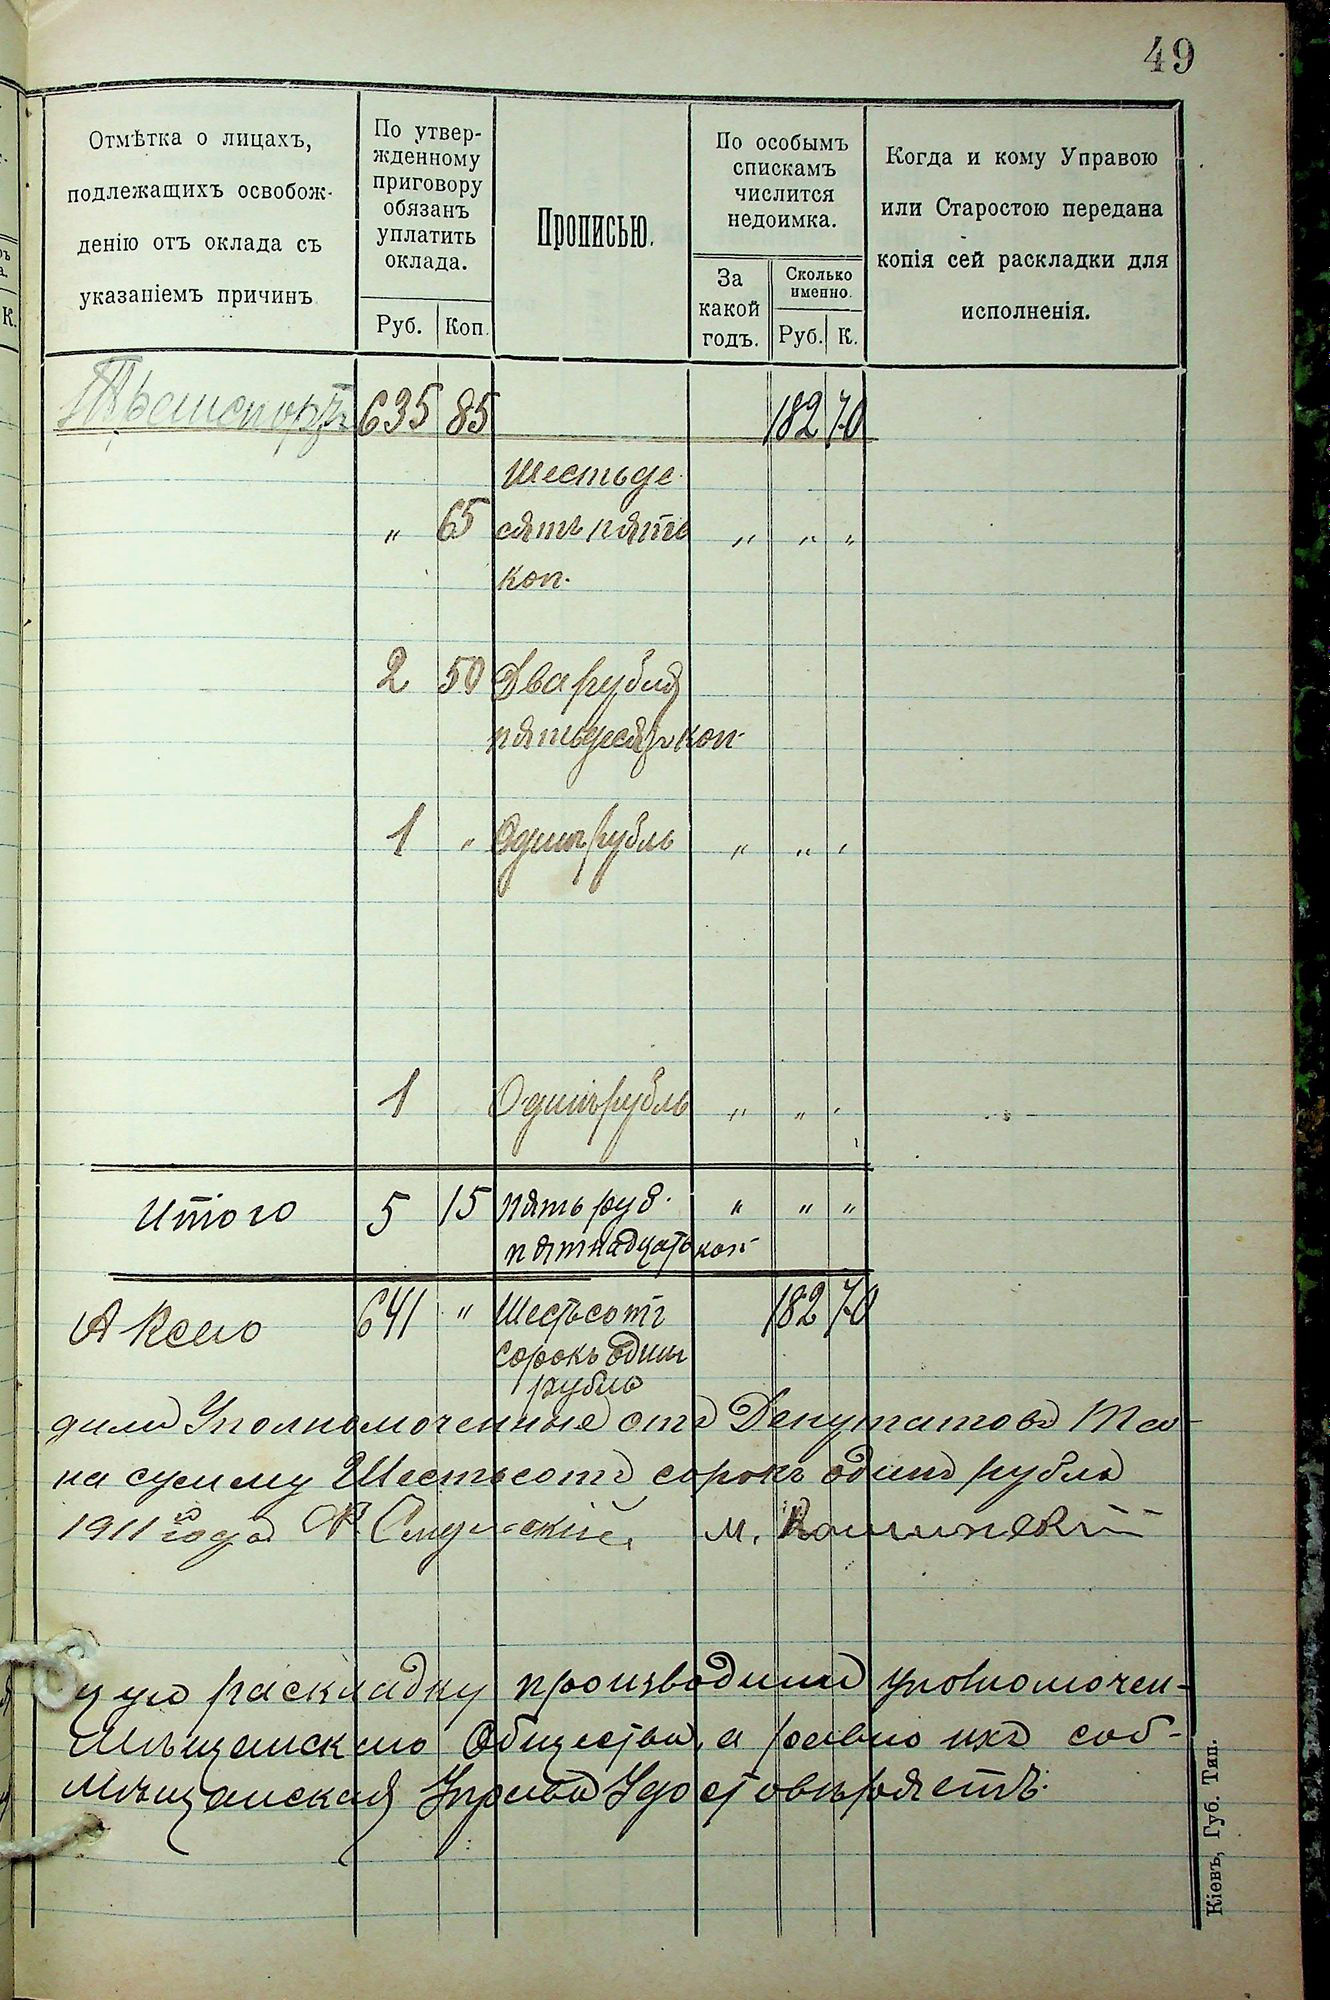 49
Отмѣтка о лицахъ,
подлежащихъ освобож-
денію отъ оклада съ
указаніемъ причинъ
По утвер-
жденному
приговору
обязанъ
уплатить
оклада.
Руб. Коп.
Прописью.
По особымъ
спискамъ
числится
недоимка.
За
какой
годъ.
Сколько
именно.
Руб. К.
Когда и кому Управою
или Старостою передана
копія сей раскладки для
исполненія.
К.
Транспортъ 635 85 182 70
Шестьде
„ 65 сятъ пять „ „ „
коп.
2 50 Два рубля
пятьдесятъ коп
1 „ Одинъ рубль „ „ „
1 Одинъ рубль „ „ „
Итого 5 15 пять руб. „ „ „
пятнадцать коп
А всего 641 „ Шестьсотъ 182 70
сорокъ одинъ
рубль
дили Уполномоченные отъ Депутатовъ
на сумму Шестьсотъ сорокъ одинъ рубль
1911 года М.
раскладку производили уполномочен-
Мѣщанскаго Общества, а равно ихъ соб-
Мѣщанская Управа Удостовѣряетъ.
Кіевъ, Губ. Тип.